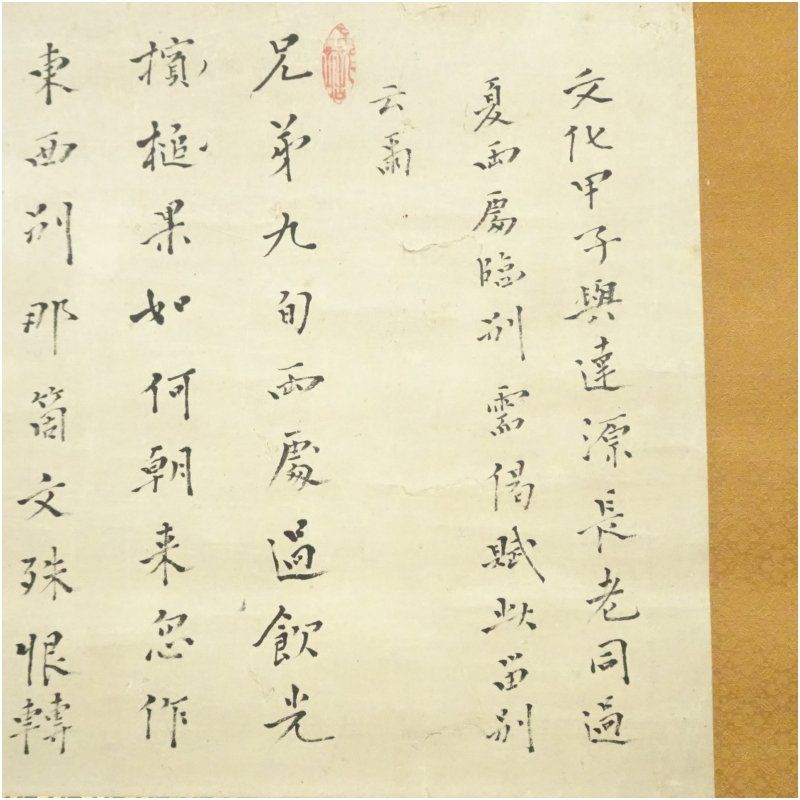 文化甲子與達源長老同過
夏両處臨別需偈賦此留別
云爾
兄弟九旬両處過飲光
擯槌果如何朝来忽作
東西別那箇文殊恨轉